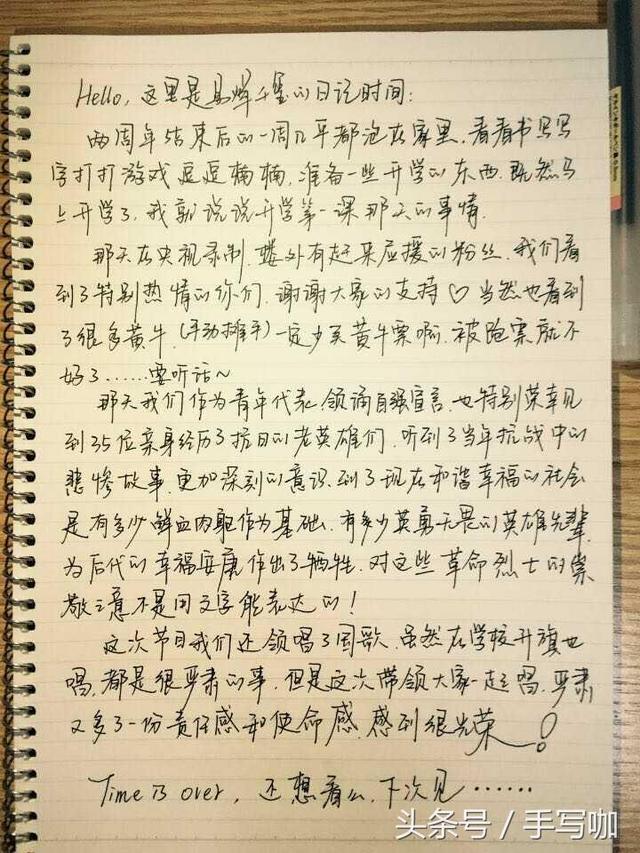 Hello, 这里是易烊千玺的日记时间:
两周年结束后的一周几乎都泡在家里. 看看书写写
字打打游戏逗逗楠楠, 准备一些开学的东西. 既然马
上开学了, 我就说说开学第一课那天的事情.
那天在央视录制, 楼外有赶来应援的粉丝. 我们看
到了特别热情的你们, 谢谢大家的支持♡ 当然也看到
了很多黄牛. (手动摊手) 一定少买黄牛票啊, 被跑票就不
好了……要听话~
那天我们作为青年代表, 领诵自强宣言, 也特别荣幸见
到35位亲身经历了抗日的老英雄们, 听到了当年抗战中的
悲惨故事. 更加深刻的意识到了现在和谐幸福的社会
是有多少鲜血肉躯作为基础. 有多少英勇无畏的英雄先辈
为后代的幸福安康作出了牺牲. 对这些革命烈士的崇
敬之意不是用文字能表达的!
这次节目我们还领唱了国歌. 虽然在学校升旗也
唱, 都是很严肃的事. 但是这次带领大家一起唱, 严肃
又多了一份责任感和使命感. 感到很光荣!
Time is over, 还想看么, 下次见……
头条号 / 手写咖